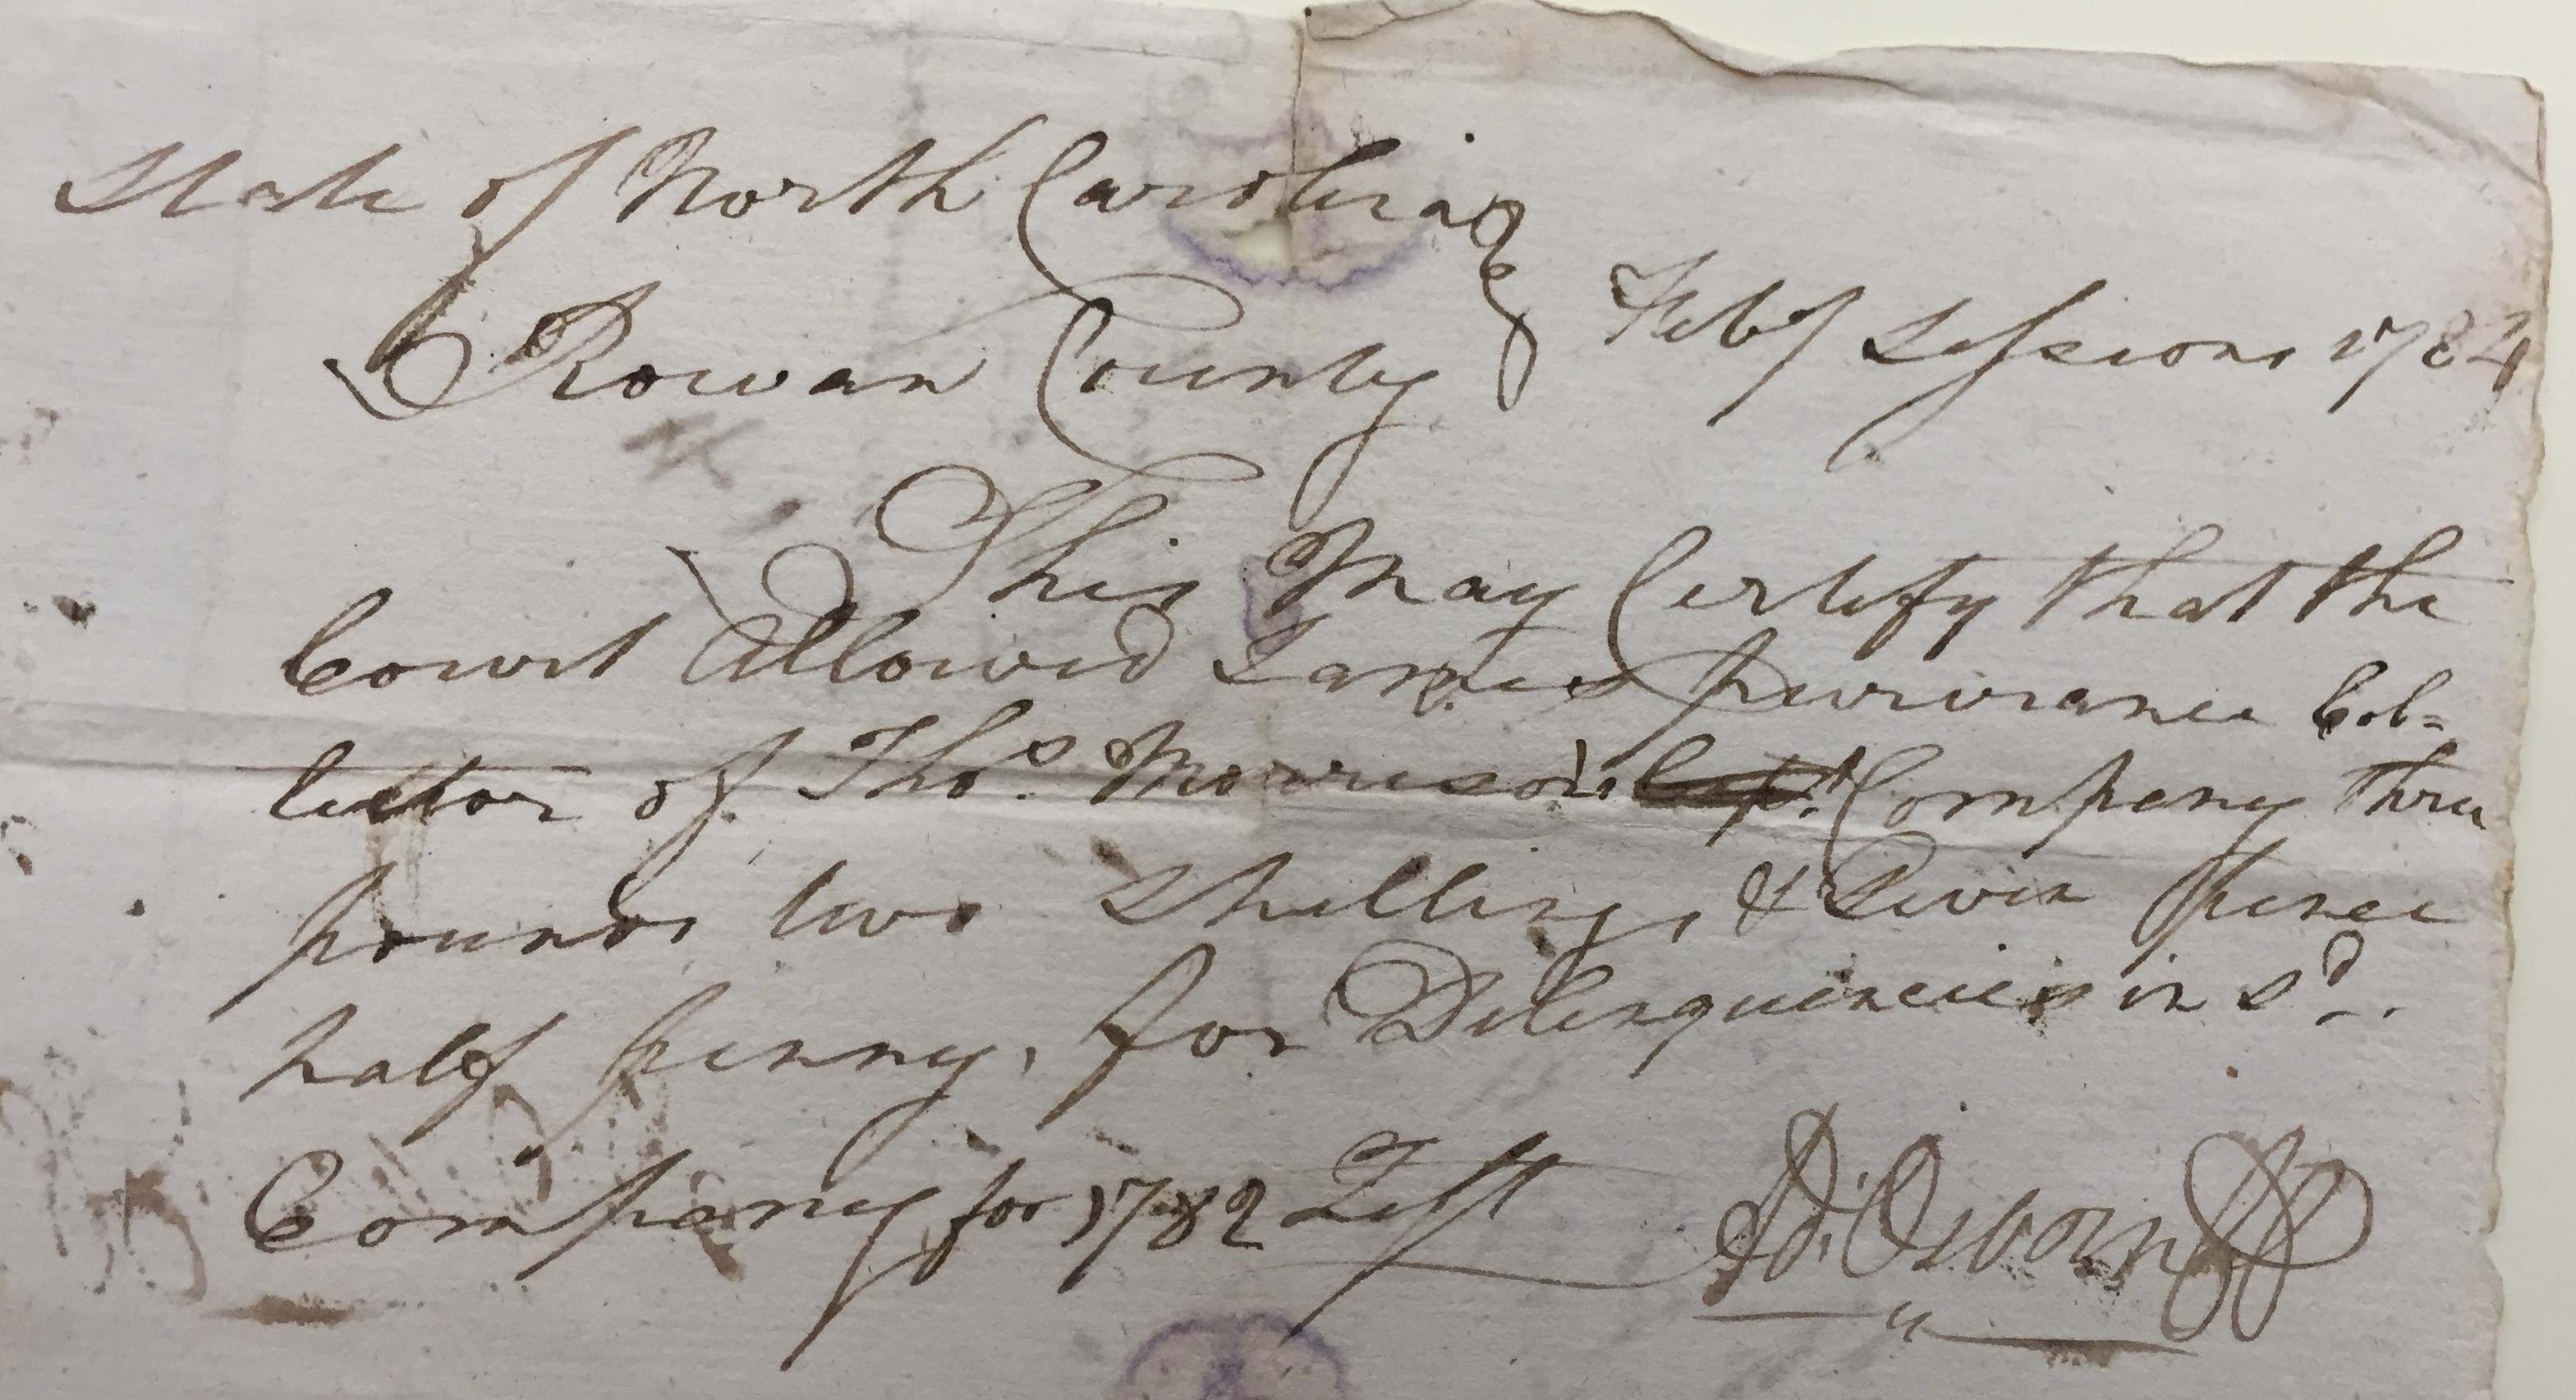 State of North Carolina
Rowan County } Feby Sessions 1784
This May Certify that the
Court Allowed James purviance Col=
lector of Thos. Morrison's Capt. Company three
pounds two Shillings, & Seven pence
half penny, for Delinquencies in sd.
Company for 1782 Test Ad. Osborn